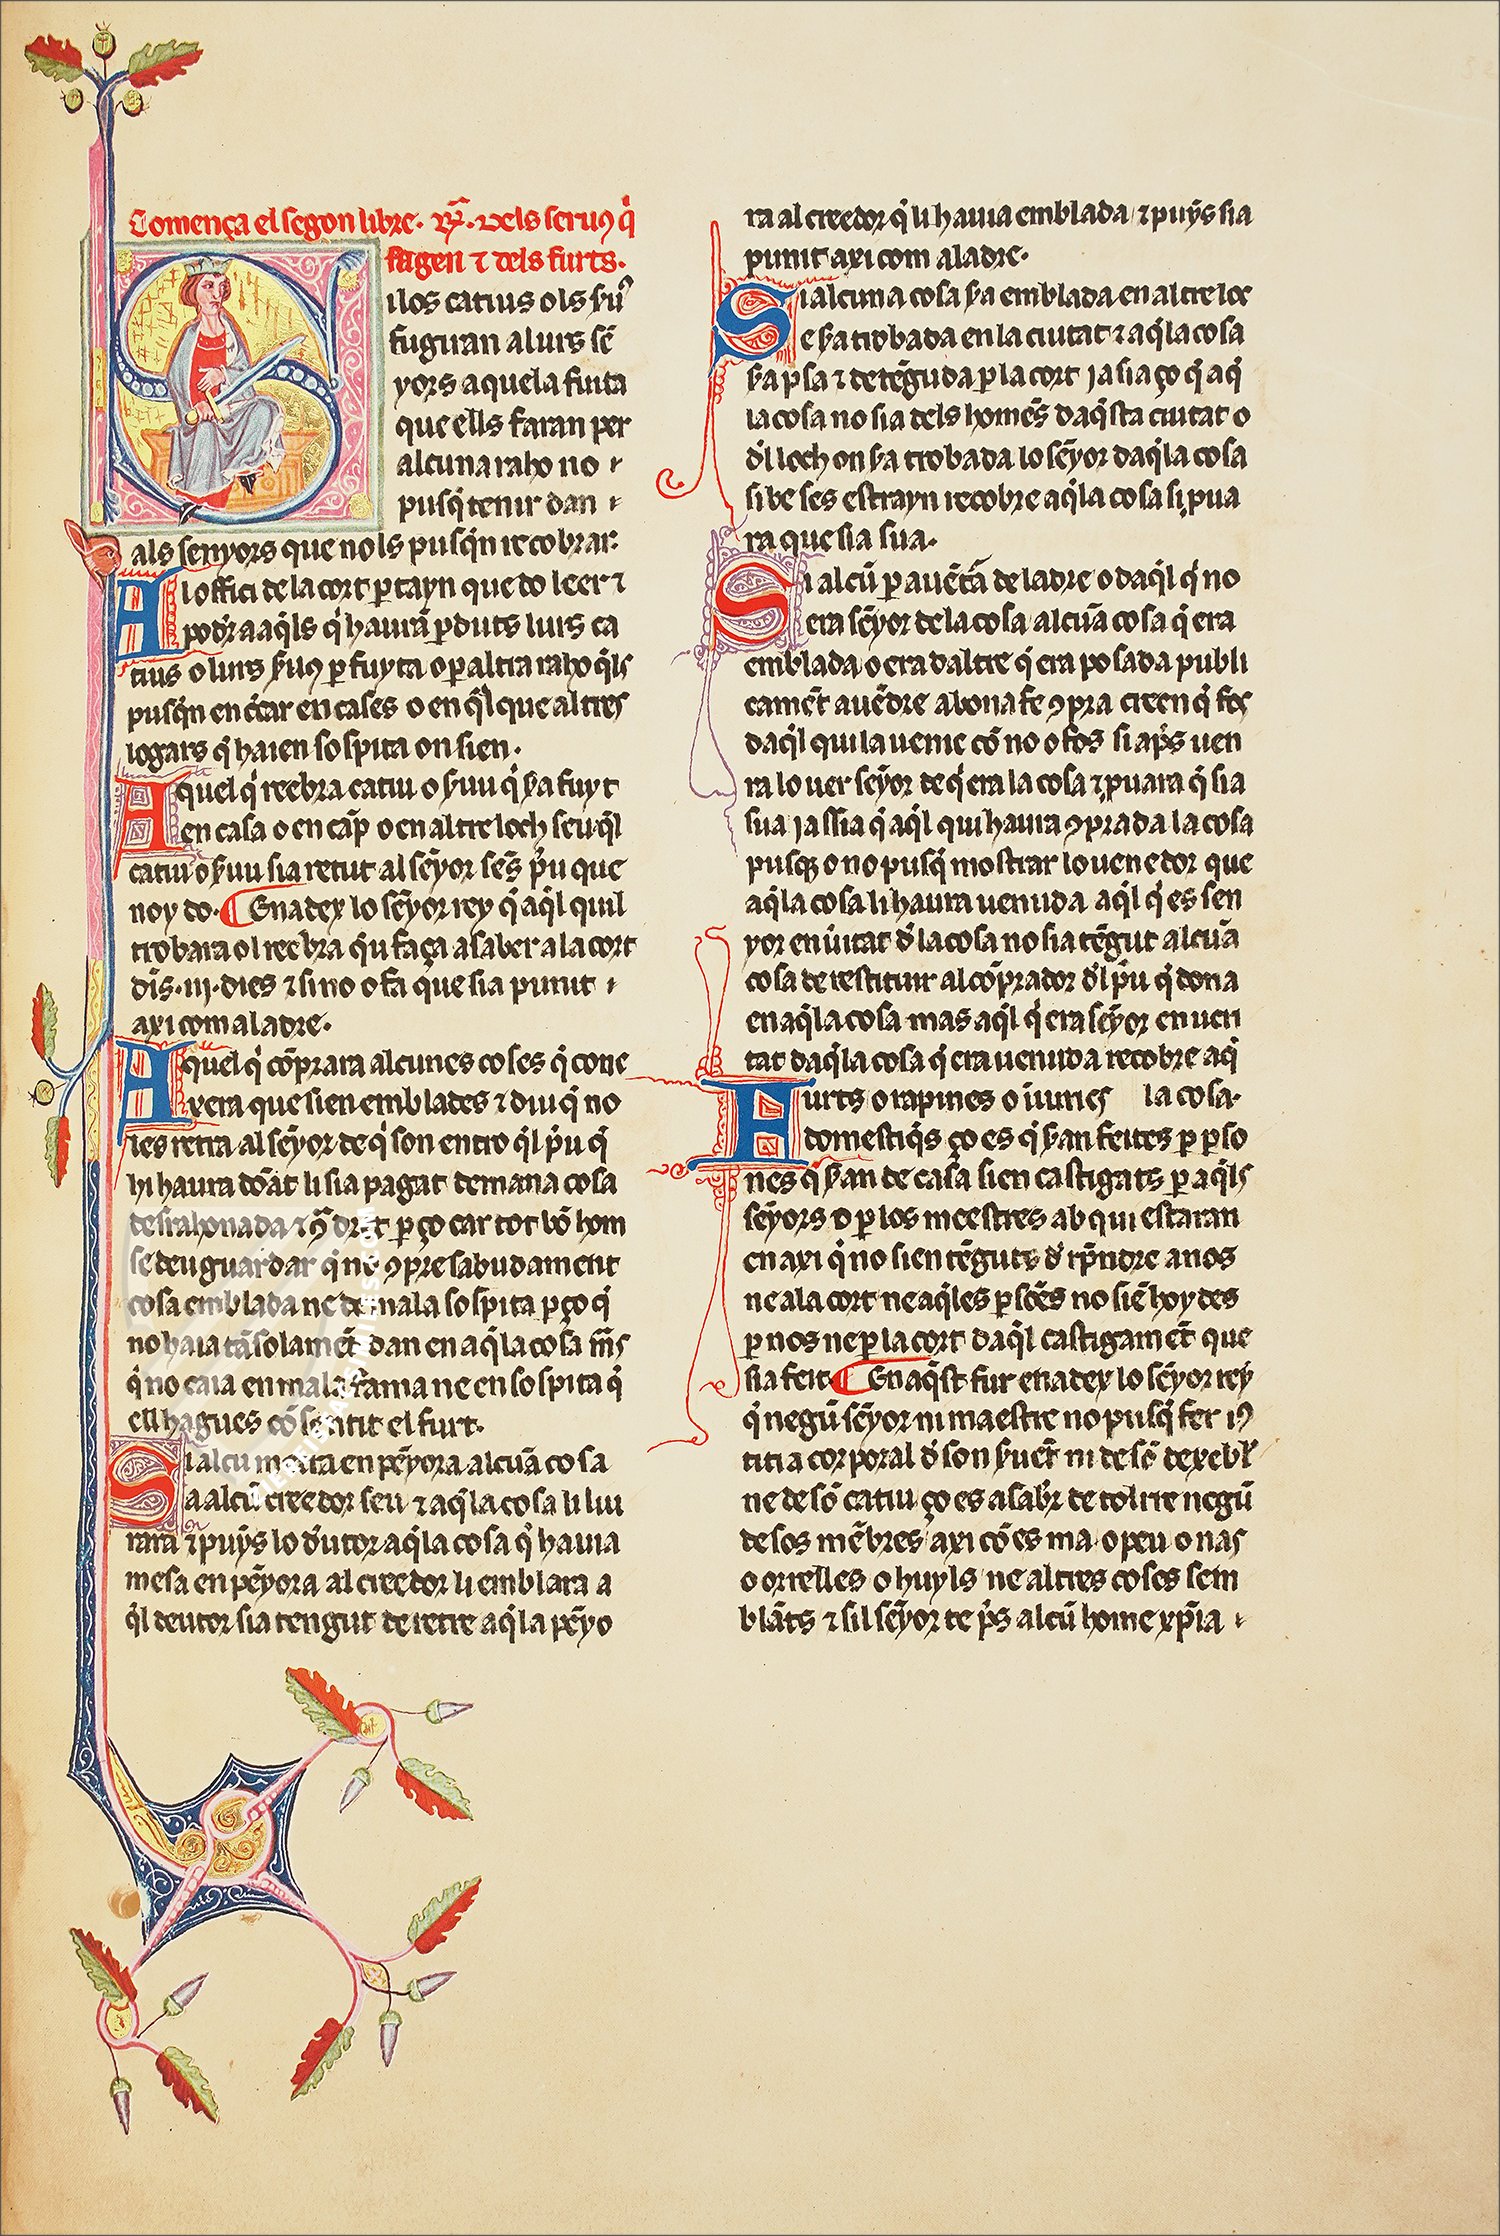 Comença el segon libre. Rᵃ. dels seruꝰ q̇
fagen ⁊ dels furts.
Si los catius o ls ẜuꝰ
fugiran a lurs sē
yors aquela fuita
que ells faran per
alcuna raho no
pusq̇ tenir dan
als senyors que no ls pusq̄n recobrar.
Al offici de la cort ꝑtayn que do leer ⁊
poďr a aq̇ls q̇ haurā ꝑduts lurs ca
tius o lurs ẜuꝰ ꝑ fuyta o ꝑ altra raho q̇ ls
pusq̄n en cercar en cases o en q̇l que altres
logars q̇ haien sospita on sien.
Aquel q̇ reebra catiu o ẜuu q̇ ẜa fuyt
en casa o en cāp o en altre loch seu q̇l
catiu o ẜuu sia retut al sēyor sēs p̄u que
no y do. ¶ Enadex lo sēyor rey q̇ aq̇l qui l
trobara o l reebra q̇u faça a saber a la cort
dīs .iij. dies ⁊ si no o fa que sia punit
axi com a ladre.
Aquel q̇ cōprara alcunes coses q̇ cone
xera que sien emblades ⁊ diu q̇ no
les retra al sēyor de q̇ son entro q̇l p̄u q̇
hi haura dōat li sia pagat demana cosa
desrahonada ⁊ ꝯᵃ dret ꝑ ço car tot bō hom
se deu guardar q̇ no ꝯpre sabudament
cosa emblada ne de mala sospita ꝑ ço q̇
no haia tā solamēt dan en aq̇la cosa m̄s
q̇ no caia en mala fama ne en sospita q̇
ell hagues cōsentit el furt.
Si alcu metra en pēyora alcūa cosa
a alcū creedor seu ⁊ aq̇la cosa li liu
rara ⁊ puỹs lo ďutor aq̇la cosa q̇ hauia
mesa en pēyora al creedor li emblara a
q̇l deutor sia tengut de retre aq̇la pēyo
ra al creedor q̇ li hauia emblada ⁊ puỹs sia
punit axi com a ladre.
Si alcuna cosa ẜa emblada en altre loc
e ẜa trobada en la ciutat ⁊ aq̇la cosa
ẜa p̄sa ⁊ detēguda ꝑ la cort ja sia ço q̇ aq̇
la cosa no sia dels homēs daq̇sta ciutat o
ďl loch on ẜa trobada lo sēyor daq̇la cosa
si be s es estrayn recobre aq̇la cosa si pua
ra que sia sua.
Si alcū ꝑ auētā de ladre o daq̇l q̇ no
era sēyor de la cosa alcūa cosa q̇ era
emblada o era daltre q̇ era posada publi
camēt a uēdre a bona fe ꝯpra creen q̇ fos
daq̇l qui la uenie cō no o fos si ap̄s uen
ra lo uer sēyor de q̇ era la cosa ⁊ puara q̇ sia
sua ja ssia q̇ aq̇l qui haura ꝯprada la cosa
pusq̇ o no pusq̇ mostrar lo uenedor que
aq̇la cosa li haura uenuda aq̇l q̇ es sen
yor en ūitat ď la cosa no sia tēgut alcūa
cosa de restituir al cōprador ďl p̄u q̇ dona
en aq̇la cosa mas aq̇l q̇ era sēyor en uen
tat daq̇la cosa q̇ era uenuda recobre aq̇
la cosa.
Furts o rapines o iiuries
domestiq̇s ço es q̇ ẜan feites ꝑ ꝑso
nes q̇ ẜan de casa sien castigats ꝑ aq̇ls
sēyors o ꝑ los meestres ab qui estaran
en axi q̇ no sien tēguts ď rp̄ndre a nos
ne a la cort ne aq̇les ꝑsōes no siē hoydes
ꝑ nos ne ꝑ la cort daq̇l castigamēt que
sia feit. ¶ En aq̇st fur enadex lo sēyor rey
q̇ negū sēyor ni maestre no pusq̇ fer iꝰ
titia corporal ď son ẜuēt ni de sō dexebl̄
ne de sō catiu ço es a sabr̄ de tolrre negū
de sos mēbres axi cō es ma o peu o nas
o orrelles o huyls ne altres coses sem
blāts ⁊ si l sēyor te p̄s alcū home xp̄ia